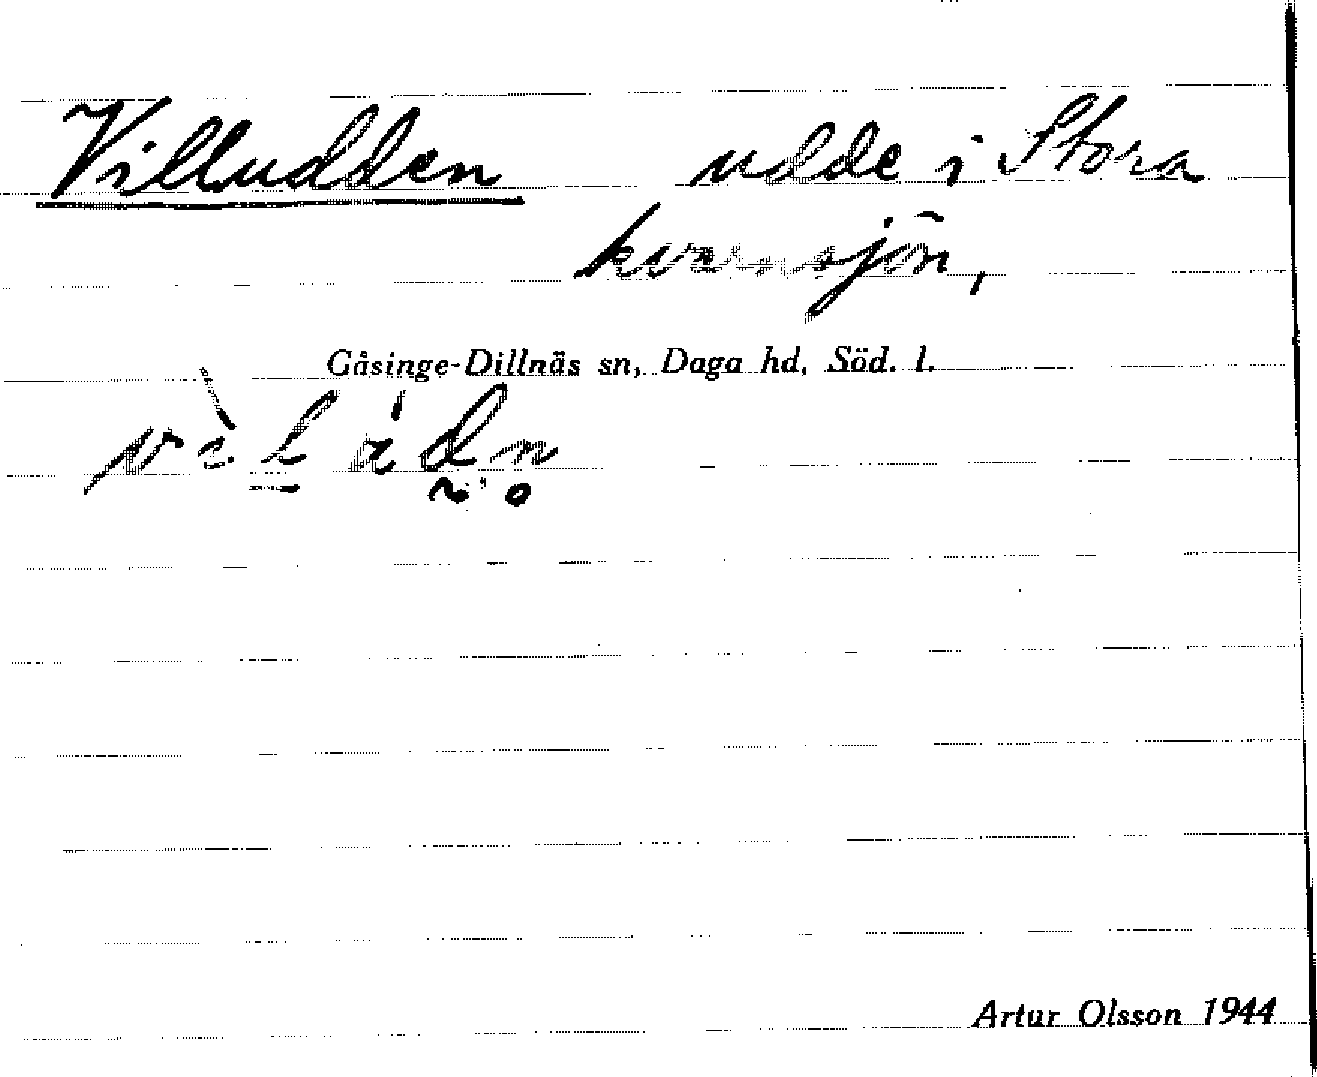 Villudden udde i Stora
kvarnsjön,
Gåsinge-Dillnäs sn, Daga hd, Söd. l.
Artur Olsson 1944